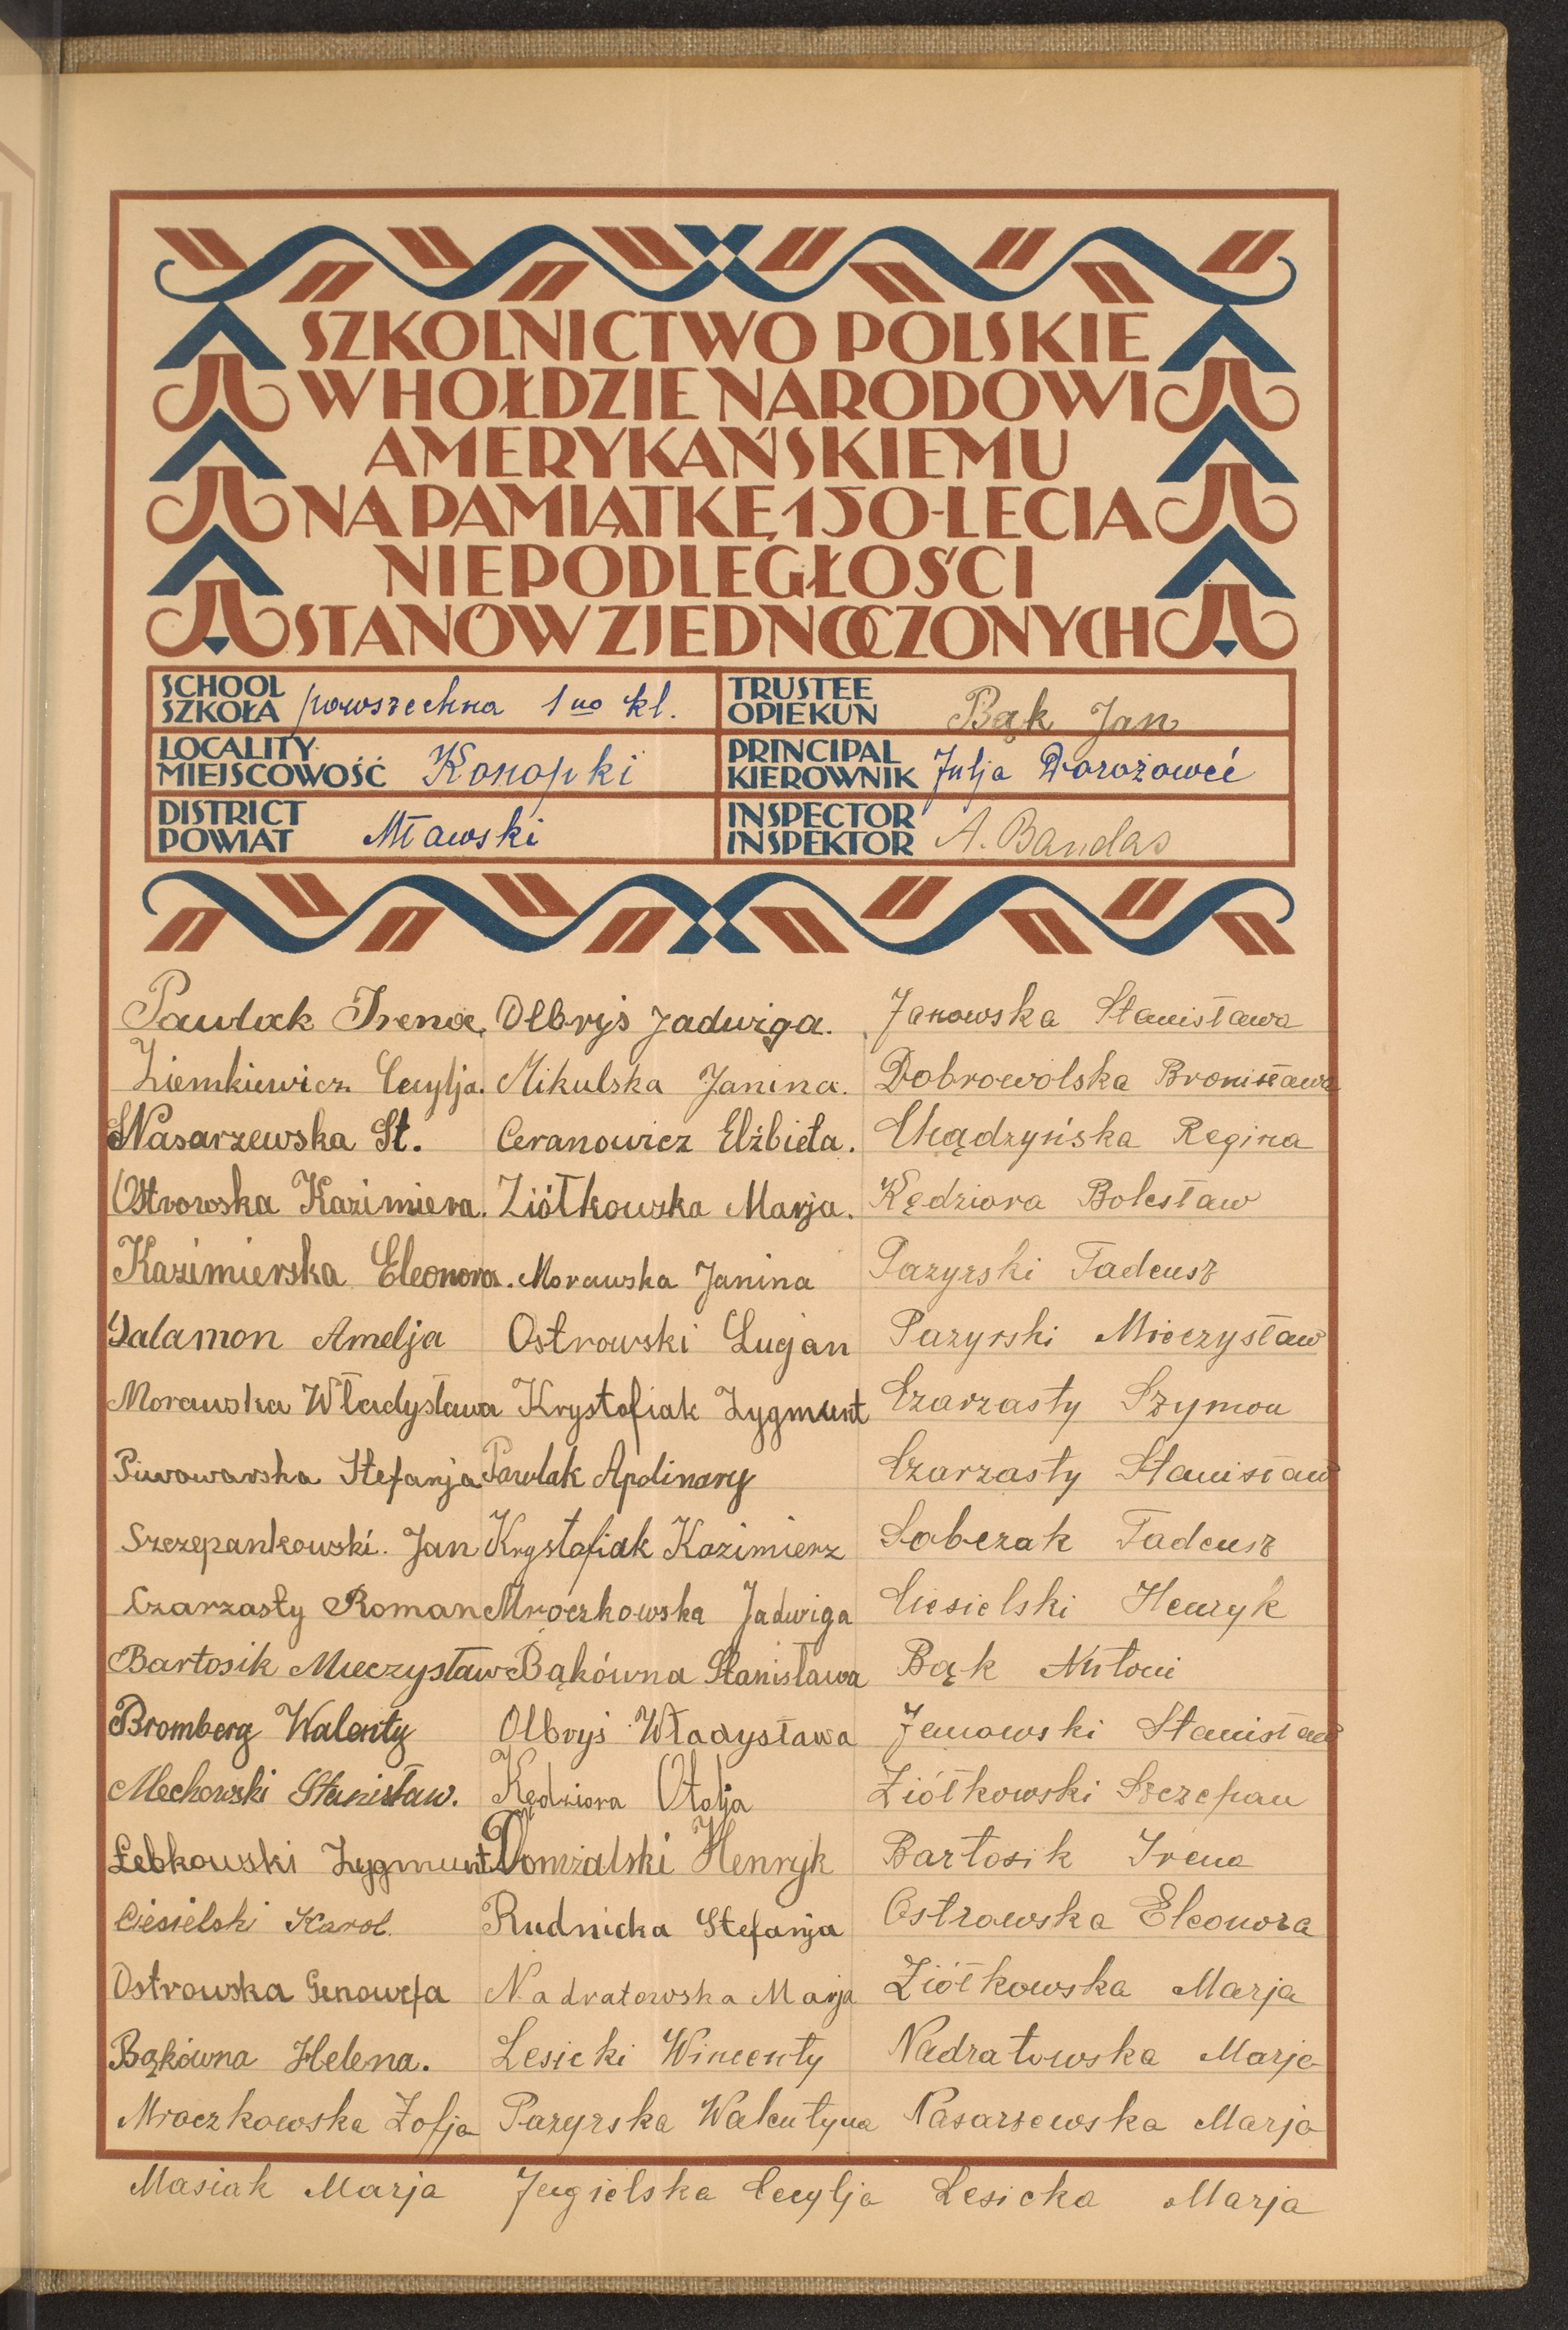 SZKOLNICTWO POLSKIE
W HOŁDZIE NARODOWI
AMERYKAŃSKIEMU
NA PAMIĄTKĘ 150-LECIA
NIEPODLEGŁOŚCI
STANÓW ZJEDNOCZONYCH
SCHOOL
SZKOŁA powszechna 1 no kl.
TRUSTEE
OPIEKUN Bąk Jan
LOCALITY
MIEJSCOWOŚĆ Konopki
PRINCIPAL
KIEROWNIK Julja
DISTRICT
POWIAT Mławski
INSPECTOR
INSPEKTOR A. Bandas
Pawlak Irena. Olbryś Jadwiga. Janowska Stanisława
Ziemkiewicz Cecylja. Mikulska Janina. Dobrowolska Bronisława
Nasarzewska St. Ceranowicz Elżbieta. Chądzyńska Regina
Ostrowska Kazimiera. Ziółkowska Marja. Kędziora Bolesław
Kazimierska Eleonora. Morawska Janina Pazyrski Tadeusz
Salamon Amelja Ostrowski Lucjan Pazyrski Mieczysław
Morawska Władysława Krystofiak Zygmunt Czarzasty Szymon
Piwowarska Stefanja Pawlak Apolinary Czarzasty Stanisław
Szczepankowski. Jan Krystofiak Kazimierz Sobczak Tadeusz
Czarzasty Roman Mroczkowska Jadwiga Ciesielski Henryk
Bartosik Mieczysław Bąkówna Stanisława Bąk Antoni
Bromberg Walenty Olbryś Władysława Janowski Stanisław
Mechowski Stanisław. Kędziora Otolja Ziółkowski Szczepan
Łebkowski Zygmunt Domżalski Henryk Bartosik Irena
Ciesielski Karol. Rudnicka Stefanja Ostrowska Eleonora
Ostrowska Genowefa Nadratowska Marja Ziółkowska Marja
Bąkówna Helena. Lesicki Wincenty Nadratowska Marja
Mroczkowska Zofja Pazyrska Walentyna Nasarzewska Marja
Masiak Marja Jagielska Cecylja Lesicka Marja